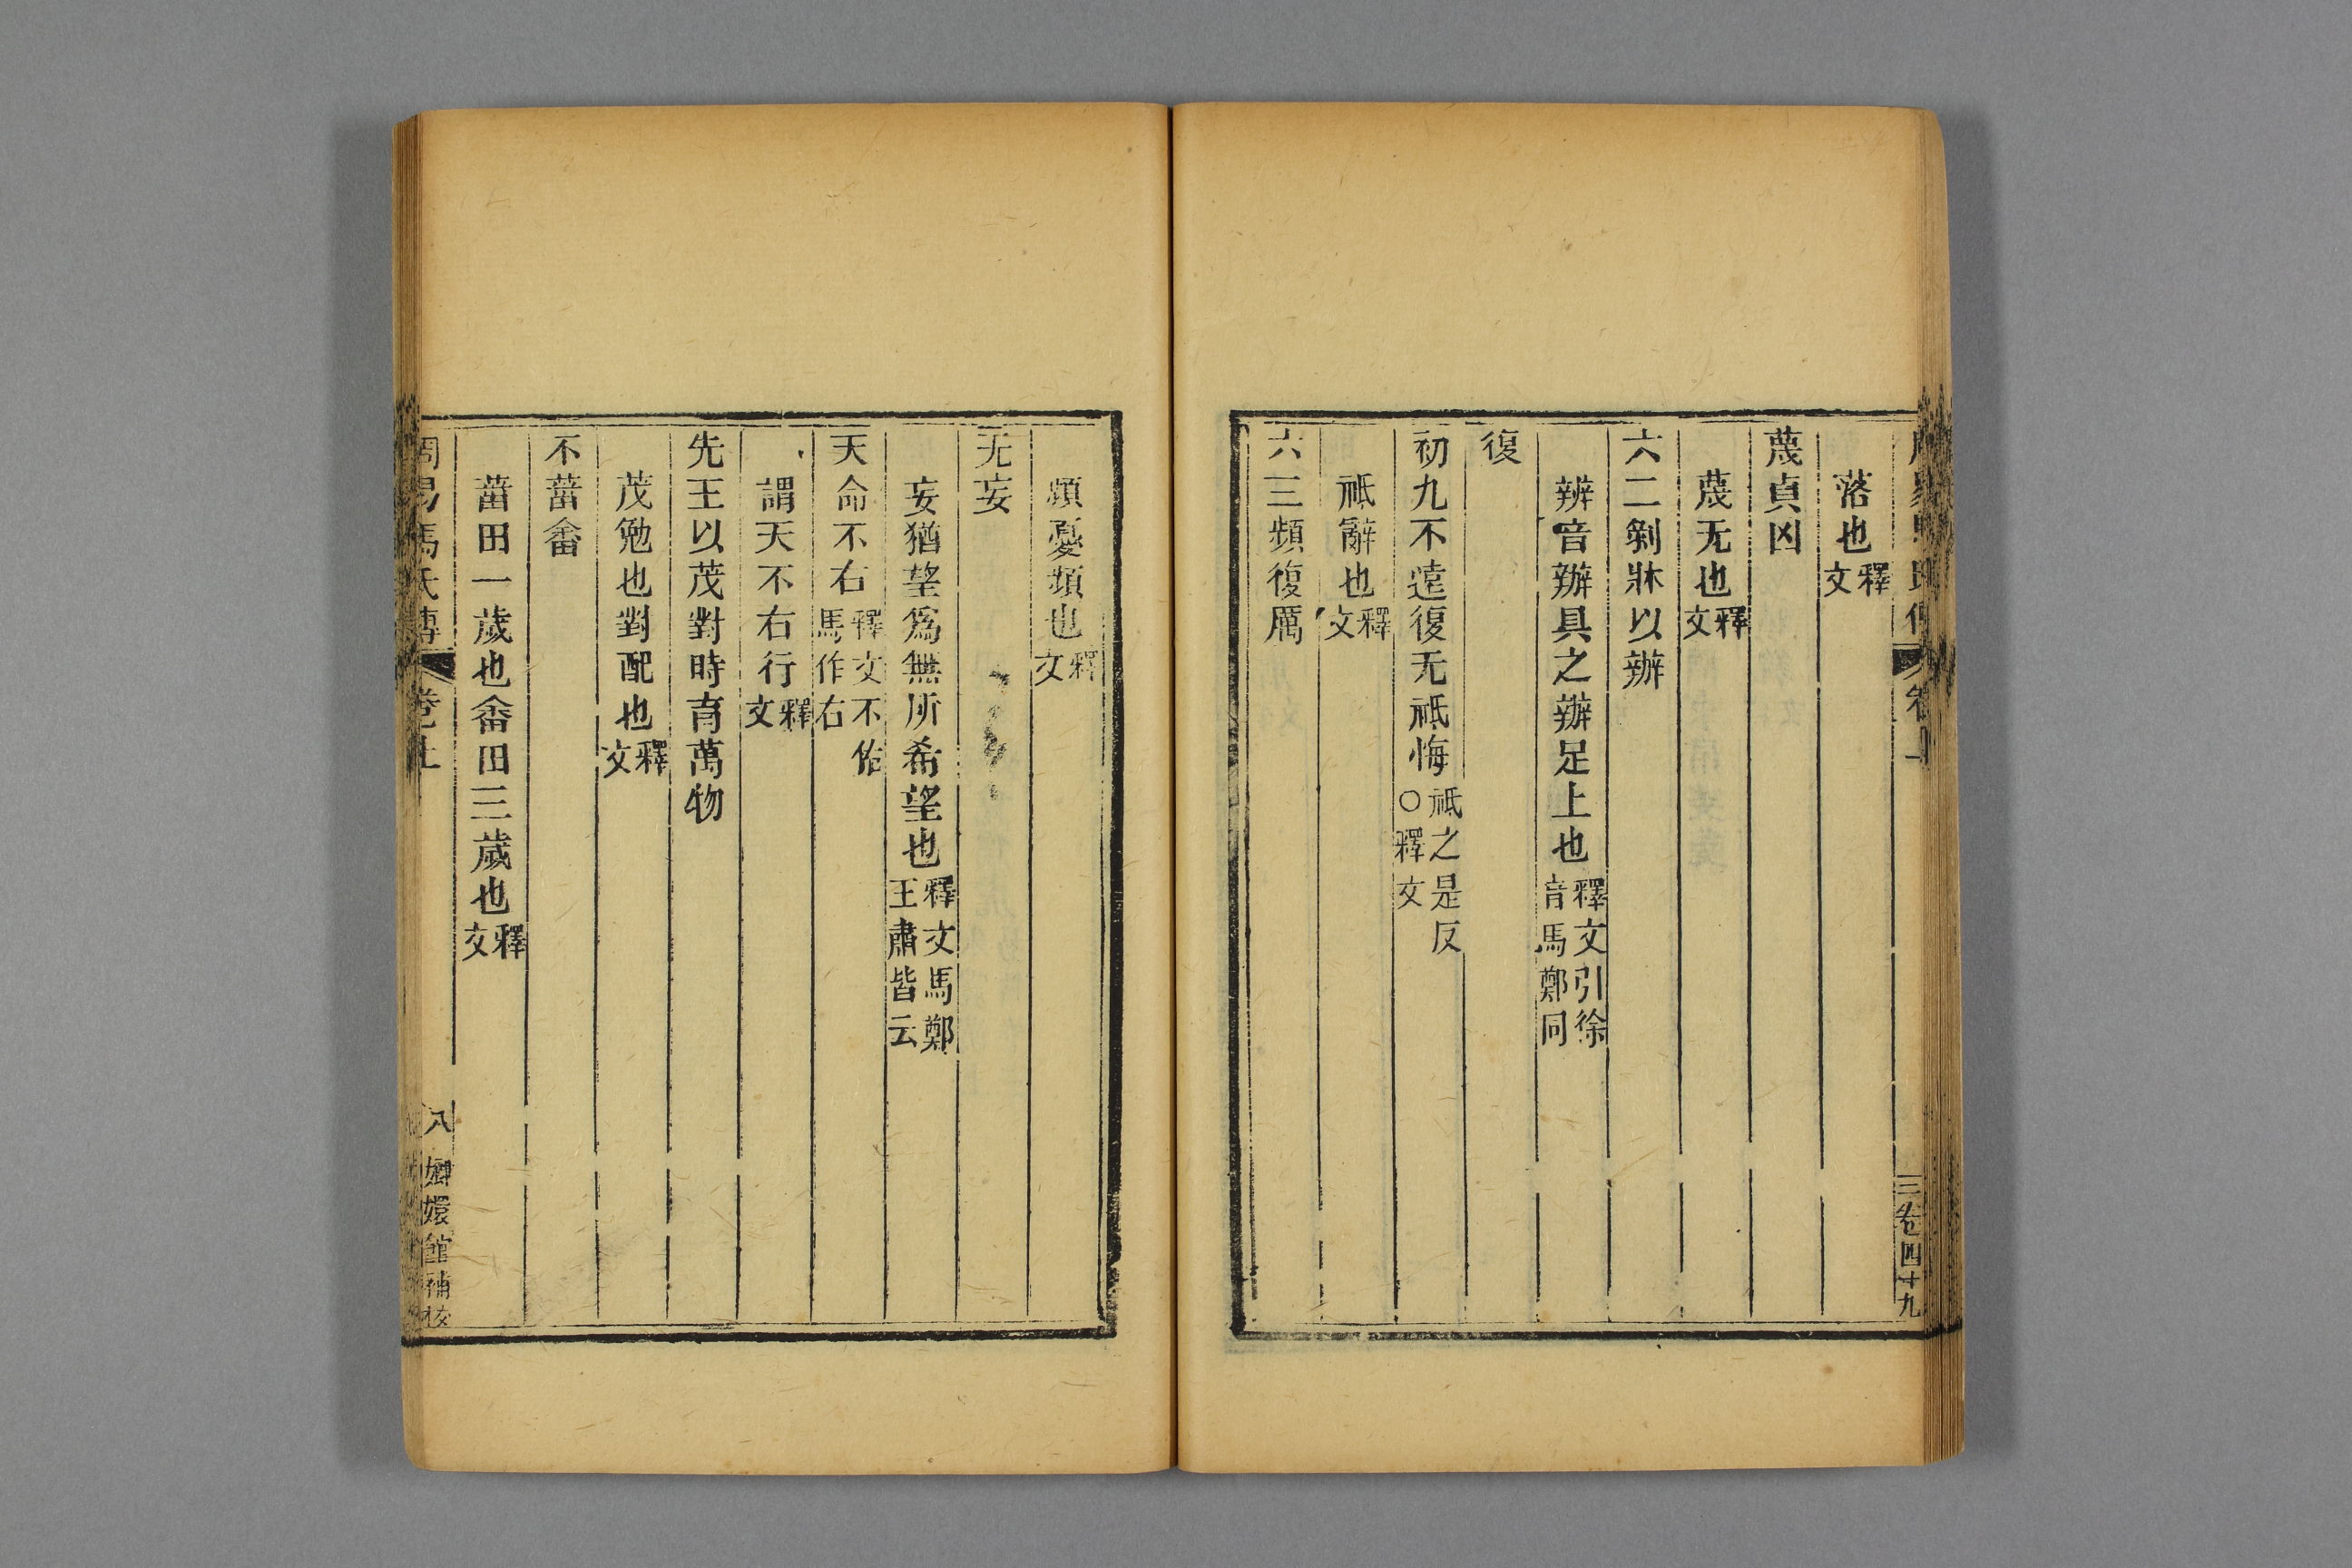 落也釋文
蔑貞凶
蔑无也釋文
六二剝牀以辦
辨音辦具之辦足上也釋文引徐音馬鄭同
復
初九不遠復无祗悔祗之是反○釋文
祗辭也釋文
六三頻復厲
頻憂頻也釋文
无妄
妄猶望爲無所希望也釋文馬鄭王肅皆云
天命不右釋文不佑馬作右
謂天不右行釋文
先王以茂對時育萬物
茂勉也對配也釋文
不菑畬
菑田一歲也畬田三歲也釋文
周易馬氏傳 卷上 八 嫏嬛館補校